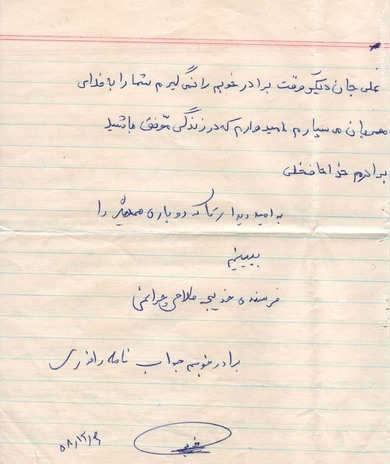 علی جان دیگر وقت برادر خوبم را نمی‌گیرم شما را به خدای
مهربان می سپارم امیدوارم که در زندگی موفق باشید
برادرم خداحافظی
به امید دیدار تا که دوباری همدیگر را
ببینیم
فرستنده خدیجه فلاحی
برادر خوبم جواب نامه را
۵۸/۱۲/۹